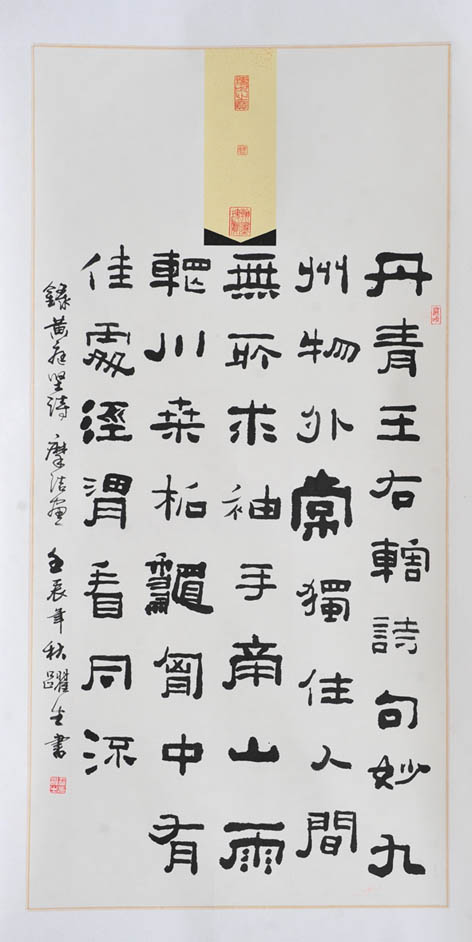 丹青王右轄詩句妙九
州物外常獨往人間
無所求袖手南山雨
輞川桑柘龝胷中有
佳處涇渭看同流
錄黃庭坚詩 摩诘畫 壬辰年秋躍生書